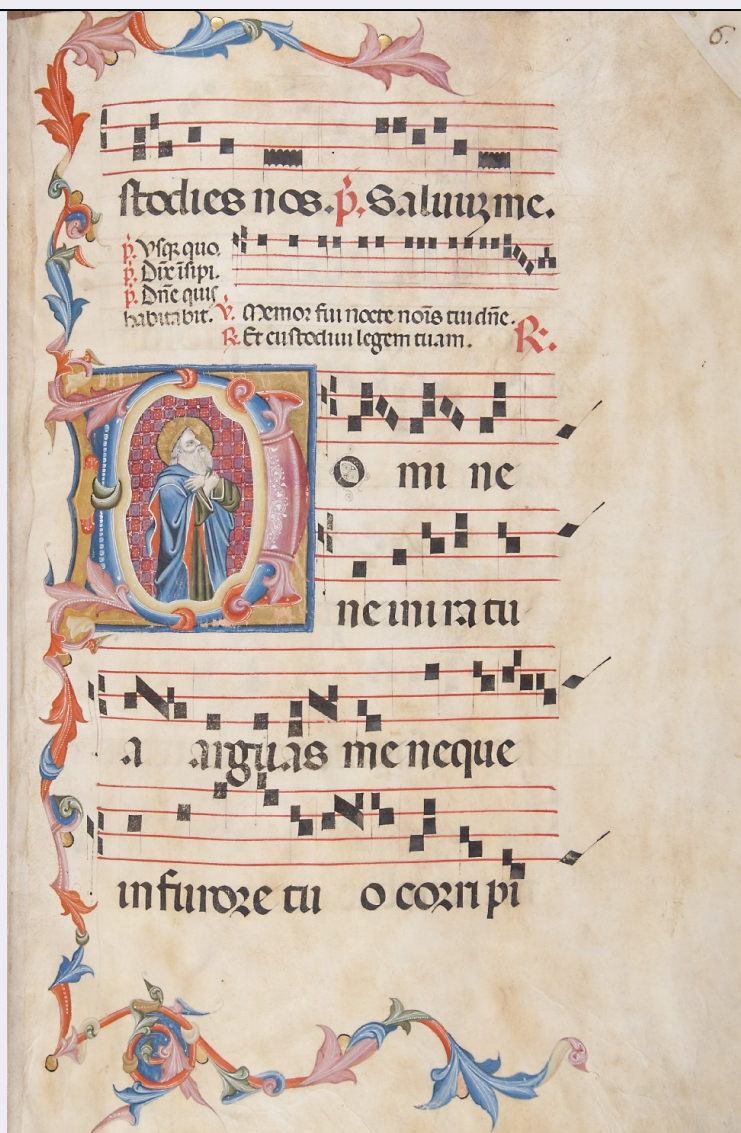 6.
stodies nos. p̄. Saluuʒ me.
p̄. Vsq̄ quo.
p̄. Dix̄ īsipi.
p̄. Dn̄e quis
habitabit. V. Memor fui nocte nōis tui dn̄e.
R. Et custodiui legem tuam. R.
O mi ne
ne in ira tu
a arguas me neque
in furore tu o corripi